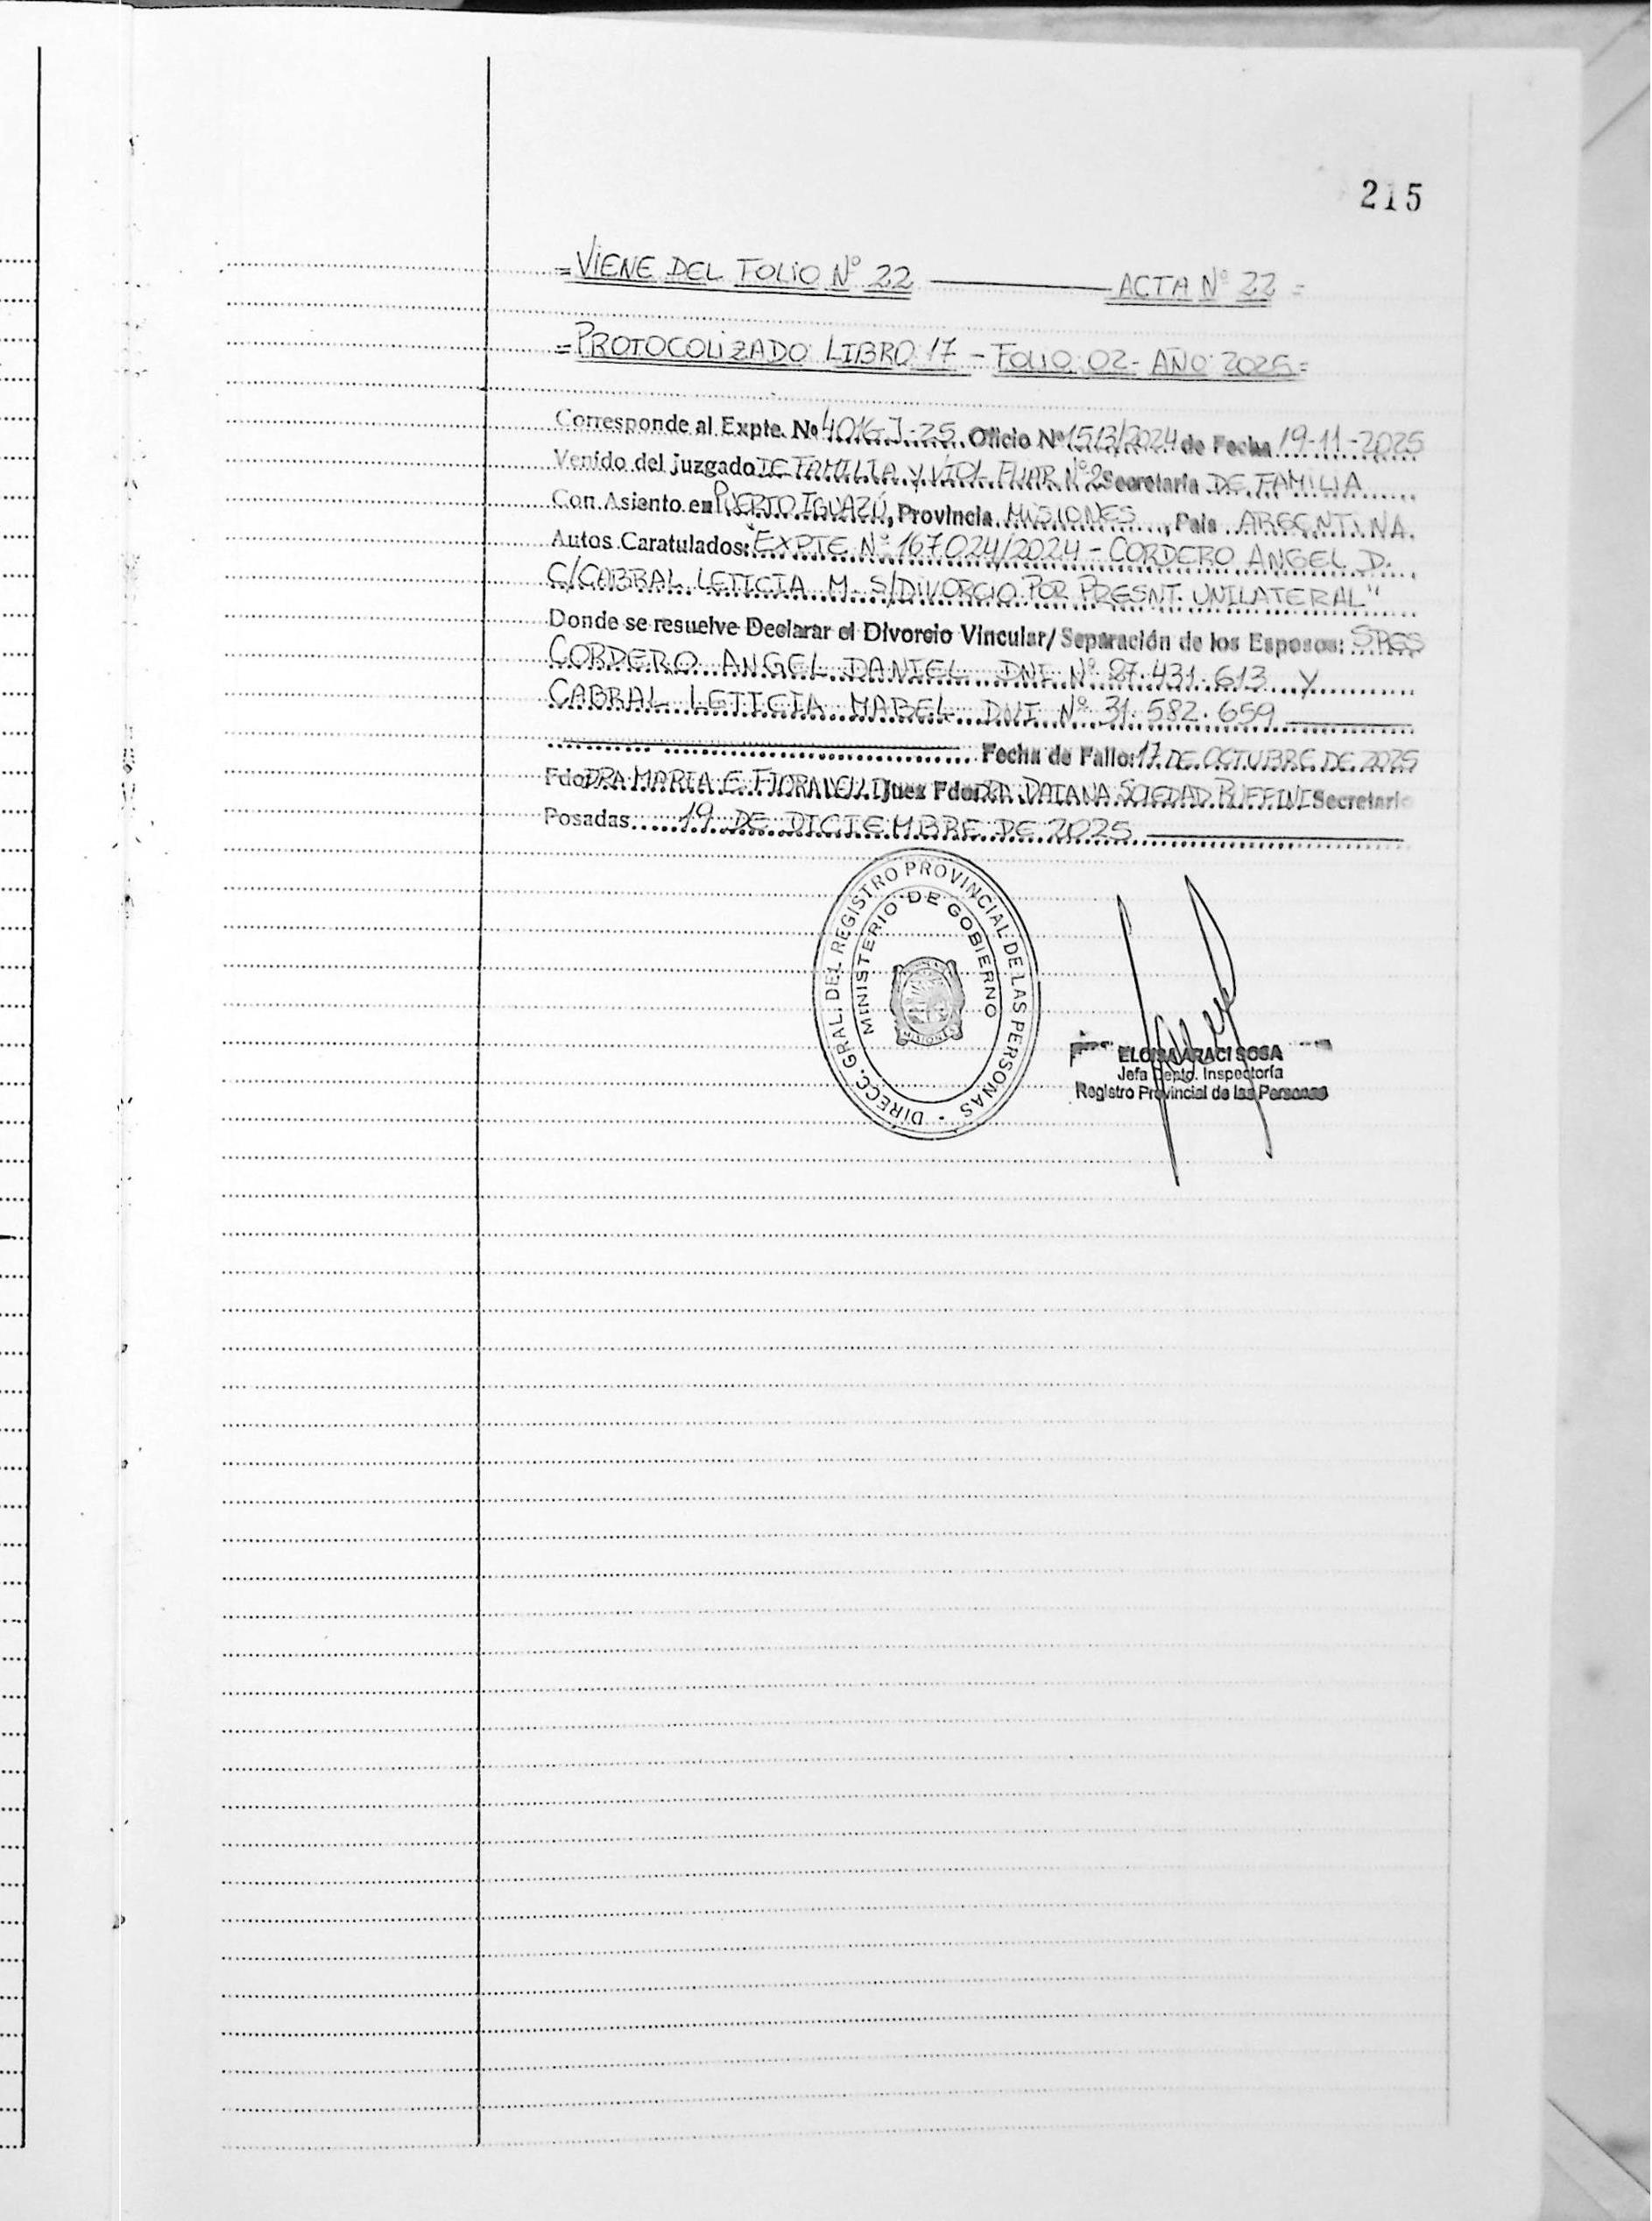 215
=VIENE DEL FOLIO Nº 22 ——— ACTA Nº 22=
=PROTOCOLIZADO LIBRO 17 - FOLIO 02 - AÑO 2025=
Corresponde al Expte. Nº 4016-J-25. Oficio Nº 1513/2024 de Fecha 19-11-2025
Venido del juzgado DE FAMILIA Y VIOL. Nº 2 Secretaría DE FAMILIA
Con Asiento en PUERTO IGUAZÚ, Provincia MISIONES, País ARGENTINA.
Autos Caratulados: EXPTE Nº 167024/2024 - CORDERO ANGEL D.
C/CABRAL LETICIA M. S/DIVORCIO POR PRESNT. UNILATERAL"
Donde se resuelve Declarar el Divorcio Vincular/Separación de los Esposos: SRES
CORDERO ANGEL DANIEL DNI Nº 27.431.613 Y
CABRAL LETICIA MABEL DNI Nº 31.582.659
Fecha de Fallo: 17 DE OCTUBRE DE 2025
Fdo: DRA MARIA E. Juez Fdo: DAIANA SOLEDAD RUFFINI Secretario
Posadas 19 DE DICIEMBRE DE 2025
DIRECC. GRAL. DEL REGISTRO PROVINCIAL DE LAS PERSONAS
MINISTERIO DE GOBIERNO
MISIONES
ELOISA ARACI SOSA
Jefa Depto. Inspectoría
Registro Provincial de las Personas